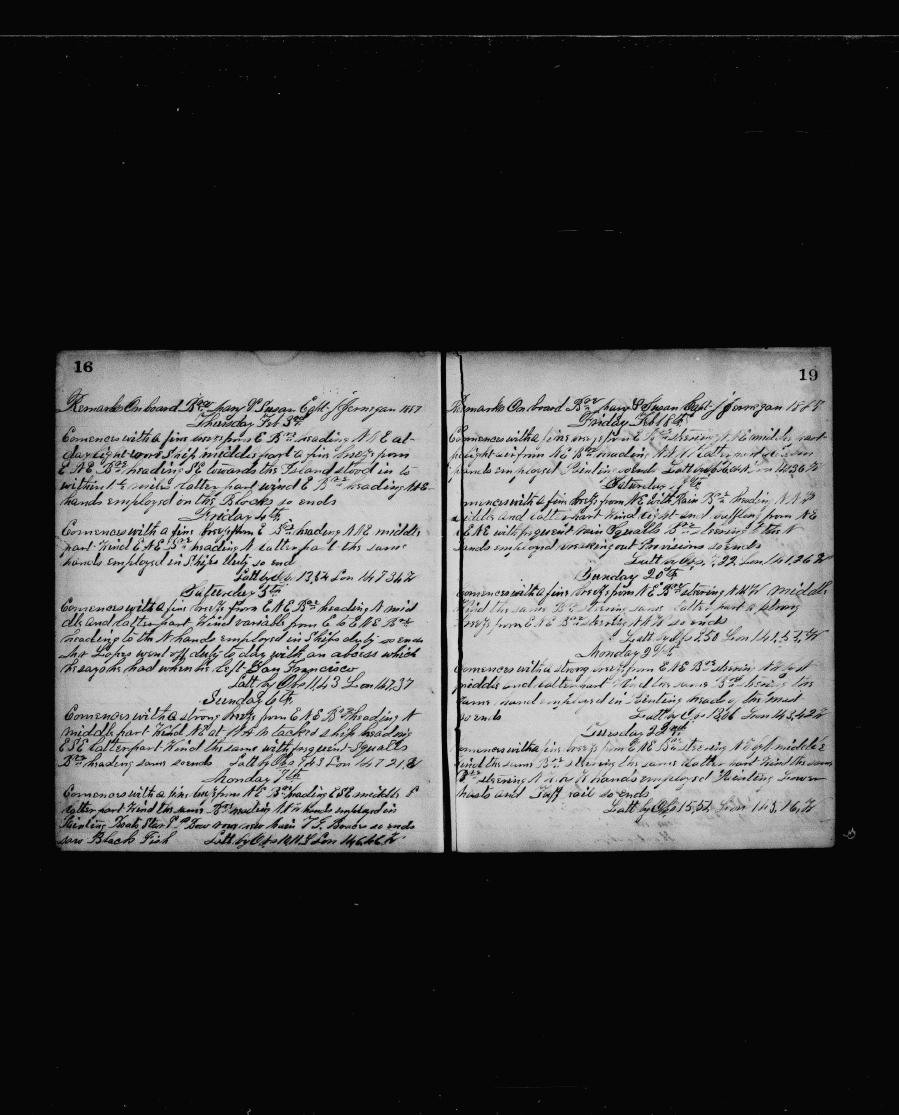 16
Remarks Onboard Bark Mary & Susan Capt J Jernegan 1887
Thursday Feb 3rd
Comences with a fine breeze from E Bark heading NNE at
daylight wore Ship middle part a fine breeze from
ENE Bark heading SE towards the Island stood in to
within miles latter part wind E Bark heading NNE
hands employed on the Blocks so ends
Friday 4th
Comences with a fine breeze from E Bark heading NNE middle
part Wind ENE Bark heading N latter part the same
hands employed in Ships duty so ends
Latt by Obs 13,54 Lon 147 34 W
Saturday 5th
Comences with a fine breeze from ENE Bark heading N mid
dle and latter part Wind variable from E to ENE Bark
heading to the N hands employed in Ships duty so ends
Lopes went off duty to day with an abcess which
he says he had when he left San Francisco
Latt by Obs 11,43 Lon 147,37
Sunday 6th
Comences with a strong breeze from ENE Bark heading N
middle part Wind NE at tacked ship heading
ESE latter part Wind the same with frequent Squalls
Bark heading same so ends Latt by Obs Lon 147 21 W
Monday 7th
Comences with a fine breeze from NE Bark heading ESE middle &
latter part Wind the same Bark heading hands employed in
Painting Boats so ends
saw Black Fish Latt by Obs Lon 146,46 W
19
Remarks On board Bark Mary & Susan Capt J Jernegan 1887
Friday Feb 18th
Comences with a fine breeze from Bark steering NNE middle part
light air from NE Bark heading latter part
hands employed Painting so ends Latt by Obs
Saturday 19th
Comences with a fine breeze from NE with Rain Bark heading NNW
middle and latter part Wind light and baffling from NE
to ENE with frequent rain Squalls Bark steering to the N
hands employed breaking out Provisions so ends
Latt by Obs Lon 141,26 W
Sunday 20th
Comences with a fine breeze from NE Bark steering NNW middle
Wind the same Bark steering same latter part a strong
breeze from ENE Bark steering so ends
Latt by Obs Lon
Monday 21st
Comences with a strong breeze from ENE Bark steering
middle and latter part Wind the same Bark steering the
same hands employed in Painting head of the mast
so ends Latt by Obs Lon 143,42 W
Tuesday 22nd
Comences with a fine breeze from ENE Bark steering middle
Wind the same Bark steering the same latter part Wind the same
Bark steering hands employed Painting lower
masts and Taff rail so ends
Latt by Obs 15,51 Lon 143,16 W